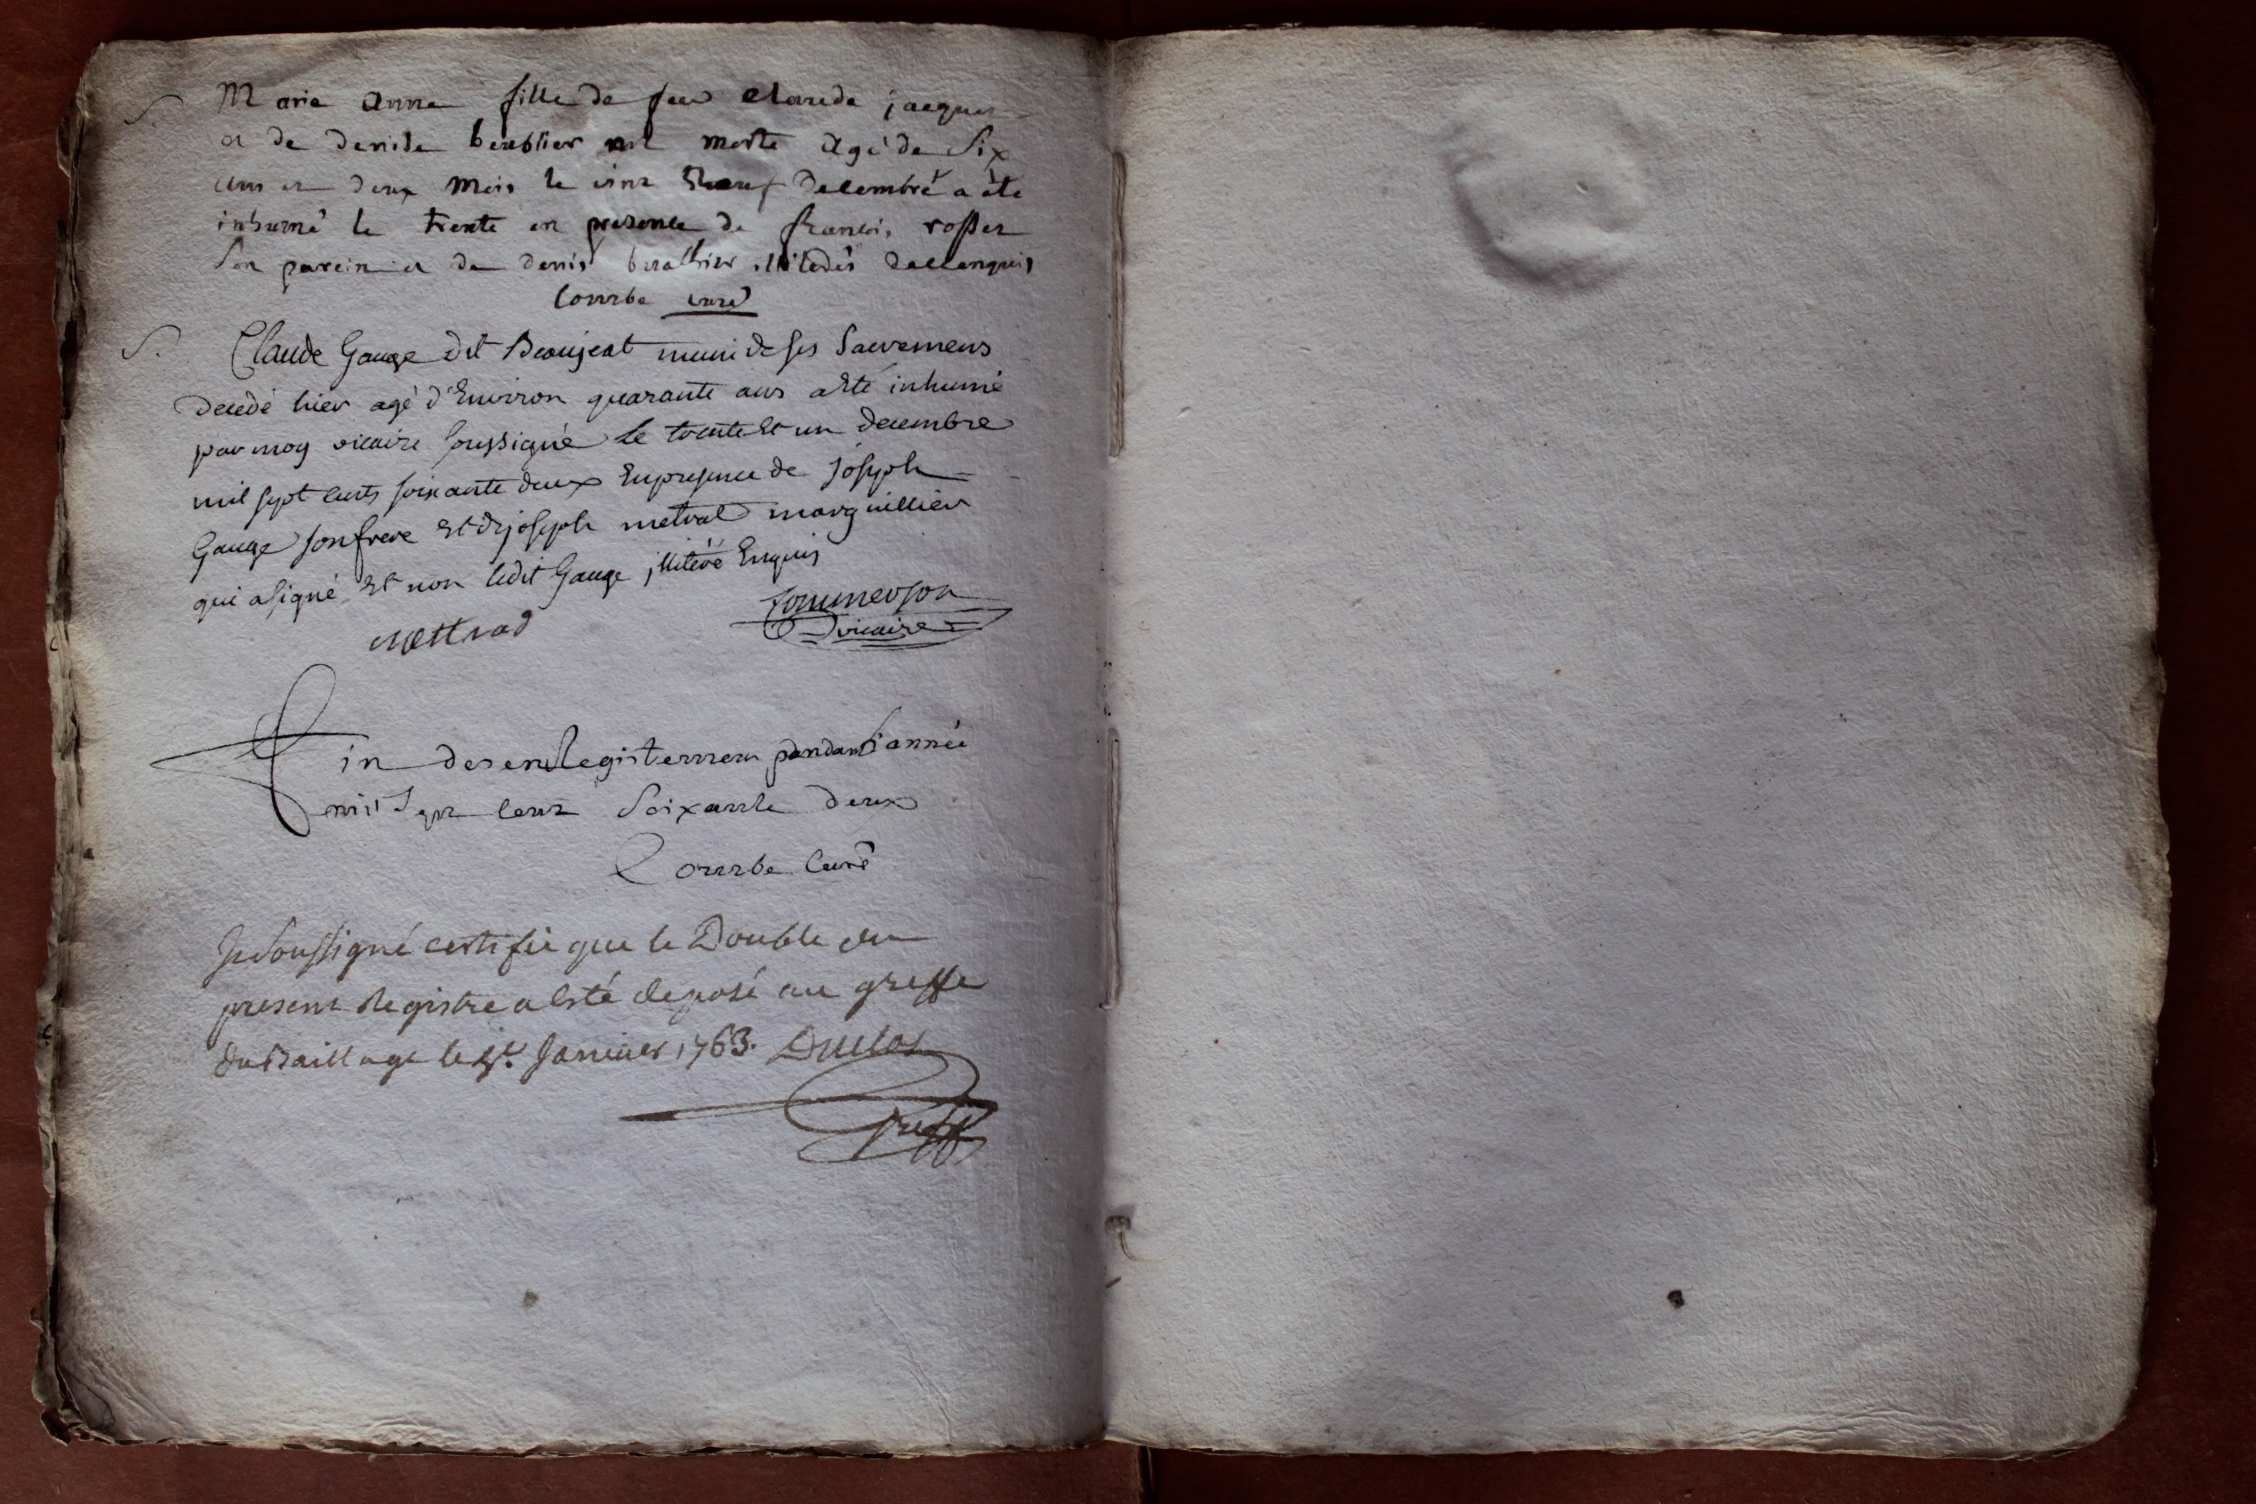 S.
Marie anne fille de feu claude jacques
et de denise berthier est morte agé de Six
ans et deux mois le vint neuf decembre a été
inhumé le trente en presence de francois rosset
son parein et de denis berthier illiteres de ce enquis
Combe curé
S.
Claude Gauge dit Beaujeat muni de ses Sacremens
decedé hier agé d'Environ quarante ans a Eté inhumé
par moy vicaire soussigné le trente Et un decembre
mil sept cents soixante deux En presence de Joseph
Gauge son frere Et de joseph metral marguillier
qui a signé Et non ledit Gauge illiteré Enquis
mettrad
Commerson
vicaire
Fin des enregistremens pendant l'année
mil Sept cent Soixante deux
Combe Curé
Je soussigné certifie que le Double du
present Registre a esté deposé au greffe
du Baillage le Janvier 1763. Duclos
Greff